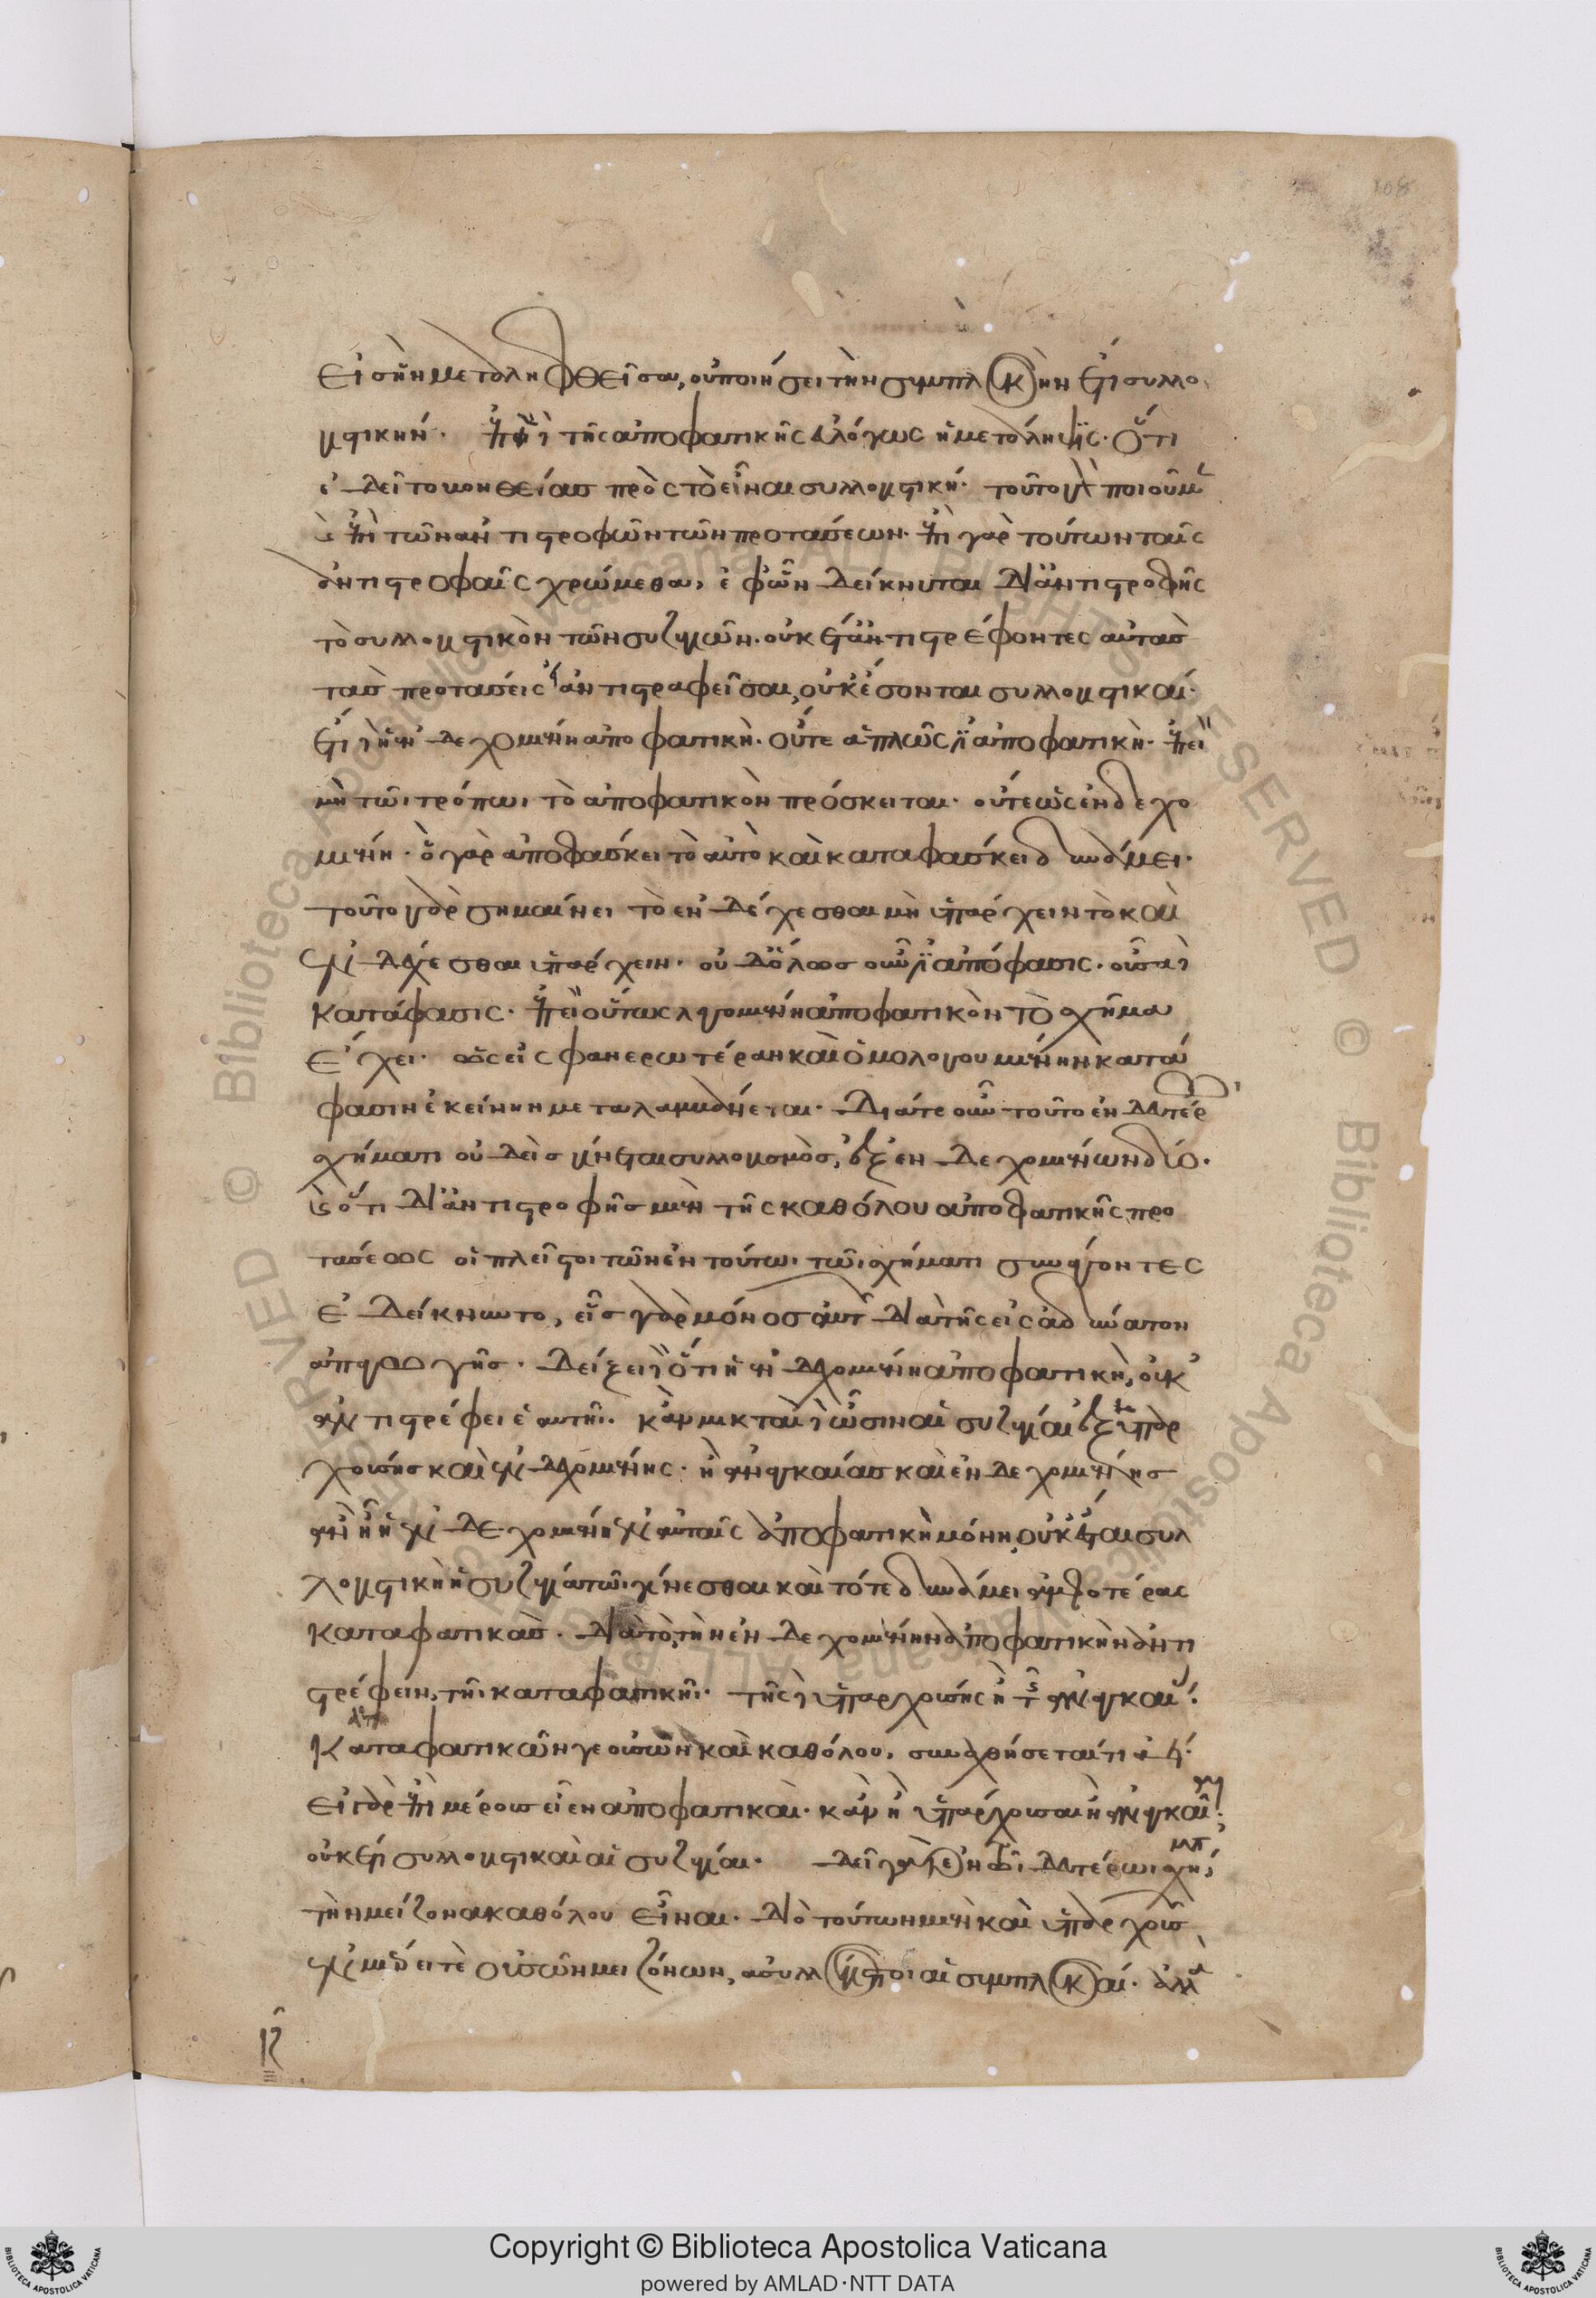 εἰς ἣν μεταληφθεῖσα, οὐ ποιήσει τὴν συμπλοκὴν ἔτι συλλο
γιστικήν. ἐπεὶ δὲ τῆς ἀποφατικῆς εὔλογος ἡ μετάληψις. ὅτι
ἐδεῖτο βοηθείας πρὸς τὸ εἶναι συλλογιστική. τοῦτο γὰρ ποιοῦμεν
καὶ ἐπὶ τῶν ἀντιστροφῶν τῶν προτάσεων. ἐπὶ γὰρ τούτων ταῖς
ἀντιστροφαῖς χρώμεθα, ἐφ' ὧν δείκνυται δι' ἀντιστροφῆς
τὸ συλλογιστικὸν τῶν συζυγιῶν. οὐκ ἔτι ἀντιστρέφοντες αὐτὰς
τὰς προτάσεις εἰ ἀντιστραφεῖσαι, οὐκ ἔσονται συλλογιστικαί.
ἔτι δὲ ἡ ἐνδεχομένη ἀποφατικὴ. οὔτε ἁπλῶς ἐστιν ἀποφατικὴ. ἐπεὶ
μὴ τῶι τρόπωι τὸ ἀποφατικὸν πρόσκειται. οὔτε ὡς ἐνδεχο
μένη. ὃ γὰρ ἀποφάσκει τὸ αὐτὸ καὶ καταφάσκει δυνάμει.
τοῦτο γὰρ σημαίνει τὸ ἐνδέχεσθαι μὴ ὑπάρχειν τὸ καὶ
ἐνδέχεσθαι ὑπάρχειν. οὐδ' ὅλως οὖν ἐστιν ἀπόφασις. οὖσα δὲ
κατάφασις. ἐπεὶ οὕτως λεγομένη ἀποφατικὸν τὸ σχῆμα
ἔχει. ὡς εἰς φανερωτέραν καὶ ὁμολογουμένην κατά
φασιν ἐκείνην μεταλαμβάνεται. Διά τε οὖν τοῦτο ἐν δευτέρω
σχήματι οὐδεὶς γίνεται συλλογισμὸς, ἐξ ἐνδεχομένων δύο.
καὶ ὅτι δι' ἀντιστροφῆς μὲν τῆς καθόλου ἀποφατικῆς προ
τάσεως οἱ πλεῖστοι τῶν ἐν τούτωι τῶι σχήματι συνάγοντες
ἐδείκνυντο, εἷς γὰρ μόνος αὐτῶν διὰ τῆς εἰς ἀδύνατον
ἀπαγωγῆς. δείξει δὲ ὅτι ἡ ἐνδεχομένη ἀποφατικὴ, οὐκ
ἀντιστρέφει ἑαυτῆι. κἂν μικταὶ δὲ ὦσιν αἱ συζυγίαι ἔκ τε ὑπαρ
χούσης καὶ ἐνδεχομένης. ἢ ἀναγκαίας καὶ ἐνδεχομένης
ἐὰν ἦ ἡ ἐνδεχομένη ἐν αὐταῖς ἀποφατικὴ μόνη, οὐκ ἔσται συλ
λογιστικὴ ἡ συζυγία τῶι γίνεσθαι καὶ τότε δυνάμει ἀμφοτέρας
καταφατικάς. διὰ τὸ, τὴν ἐνδεχομένην ἀποφατικὴν ἀντι
στρέφειν, τῆι καταφατικῆι. τῆς δὲ ὑπαρχούσης ἢ τῆς ἀναγκαίας
καταφατικῶν γε οὐσῶν καὶ καθόλου, συναχθήσεταί τι
εἰ γὰρ ἐπὶ μέρους εἶεν ἀποφατικαὶ. κἂν ἢ ὑπάρχουσαι ἢ ἀναγκαῖαι
οὐκέτι συλλογιστικαὶ αἱ συζυγίαι. δεῖ γὰρ ἐν τῶι δευτέρωι σχήματι
τὴν μείζονα καθόλου εἶναι. διὸ τούτων μὲν καὶ ὑπαρχουσῶν
ἐν μέρει τὲ οὐσῶν μειζόνων, ἀσυλλόγιστοι αἱ συμπλοκαί. ἀλλὰ
108
Copyright © Biblioteca Apostolica Vaticana
powered by AMLAD·NTT DATA